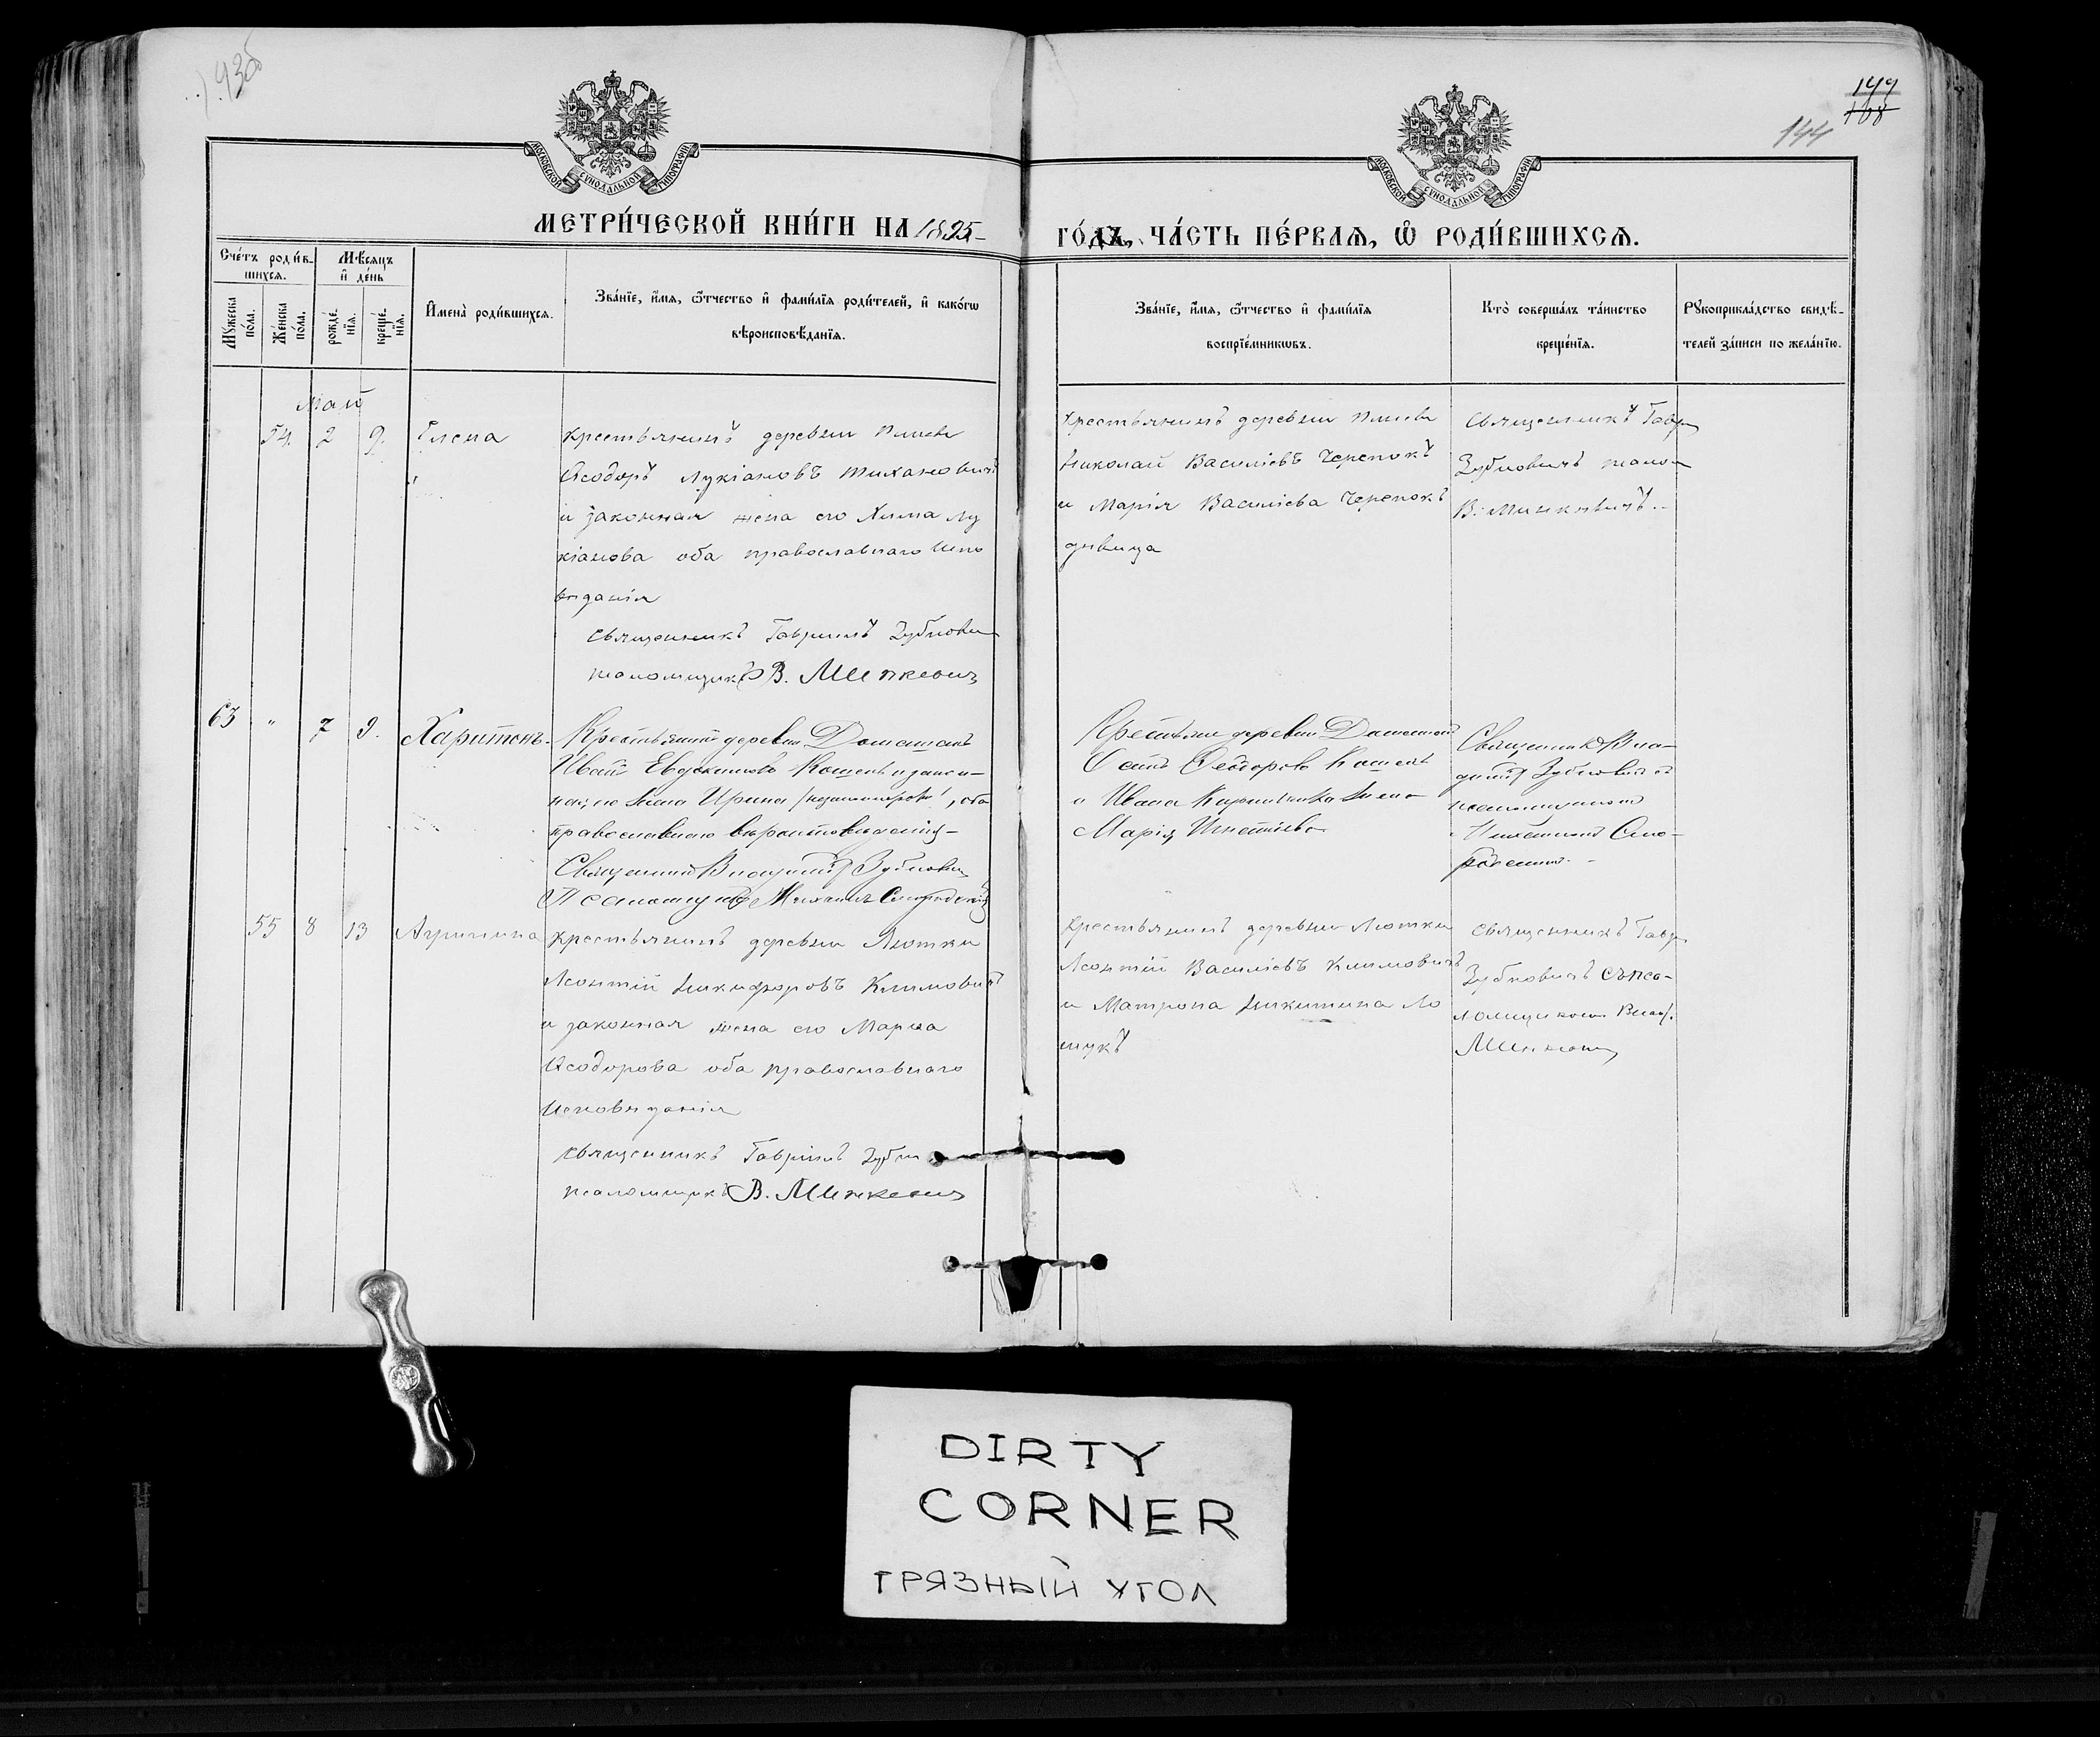 149
108
144
МОСКОВСКОЙ СѴНОДАЛЬНОЙ ТИПОГРАФІИ
МОСКОВСКОЙ СѴНОДАЛЬНОЙ ТИПОГРАФІИ
МЕТРИ́ЧЕСКОЙ КНИ́ГИ НА 1895
ГО́ДЪ, ЧА́СТЬ ПЕ́РВАѦ, Ѽ РОДИ́ВШИХСѦ.
Сче́тъ роди́в-
шихсѧ.
Мꙋ́жеска по́ла.
Же́нска по́ла.
Мѣ́сѧцъ и҆ де́нь
рожде́нїѧ.
креще́нїѧ.
И҆мена̀ роди́вшихсѧ.
Зва́нїе, и҆́мѧ, ѻ҆́тчество и҆ фами́лїѧ роди́телей, и҆ како́гѡ
вѣроисповѣ́данїѧ.
Зва́нїе, и҆́мѧ, ѻ҆́тчество и҆ фами́лїѧ
воспрїе́мникѡвъ.
Кто̀ соверша́лъ та́инство
креще́нїѧ.
Рꙋкоприкла́дство свидѣ́-
телей за́писи по жела́нїю.
Май
54. 2 9. Елена
крестьянинъ деревни
Ѳеодоръ Лукіановъ Тихановичъ
и законная жена его Хима Лу
кіанова оба православнаго испо
вѣданія
священникъ Гавріилъ Зубкович
псаломщикъ В. Минкевич
крестьянинъ деревни
Николай Василіевъ Черепокъ
и Марія Василіева Черепокъ
дѣвица
Священникъ Гавр
Зубковичъ
В. Минкевичъ
63 " 7 9. Харитонъ.
Крестьянинъ деревни
Иванъ Евдокимовъ Кошель и закон-
ная его жена Ирина, оба
православнаго вѣроисповѣданія
Священникъ Владиміръ Зубкович
Псаломщикъ Михаилъ
Крестьяне деревни
Ѳеодоровъ Кошель
и Ивана жена
Марія Игнатіева
Священникъ Вла-
диміръ Зубковичъ съ
псаломщикомъ
55 8 13 Агрипина
крестьянинъ деревни Лютки
Леонтій Никифоровъ Климовичъ
и законная жена его Марѳа
Ѳеодорова оба православнаго
исповѣданія
священникъ Гавріилъ Зубк
псаломщикъ В. Минкевич
крестьянинъ деревни Лютки
Леонтій Василіевъ Климовичъ
и Матрона Никитина Ло
шукъ
священникъ Гавр
Зубковичъ съ пса-
ломщикомъ Влад.
Минкевич
DIRTY
CORNER
ГРЯЗНЫЙ УГОЛ